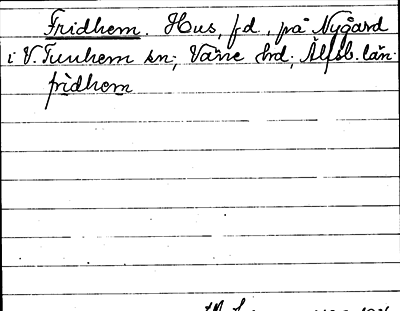 Fridhem. Hus, f.d., på Nygård
i V. Tunhem sn; Väne hd; Älfsb. län.
frìdhem